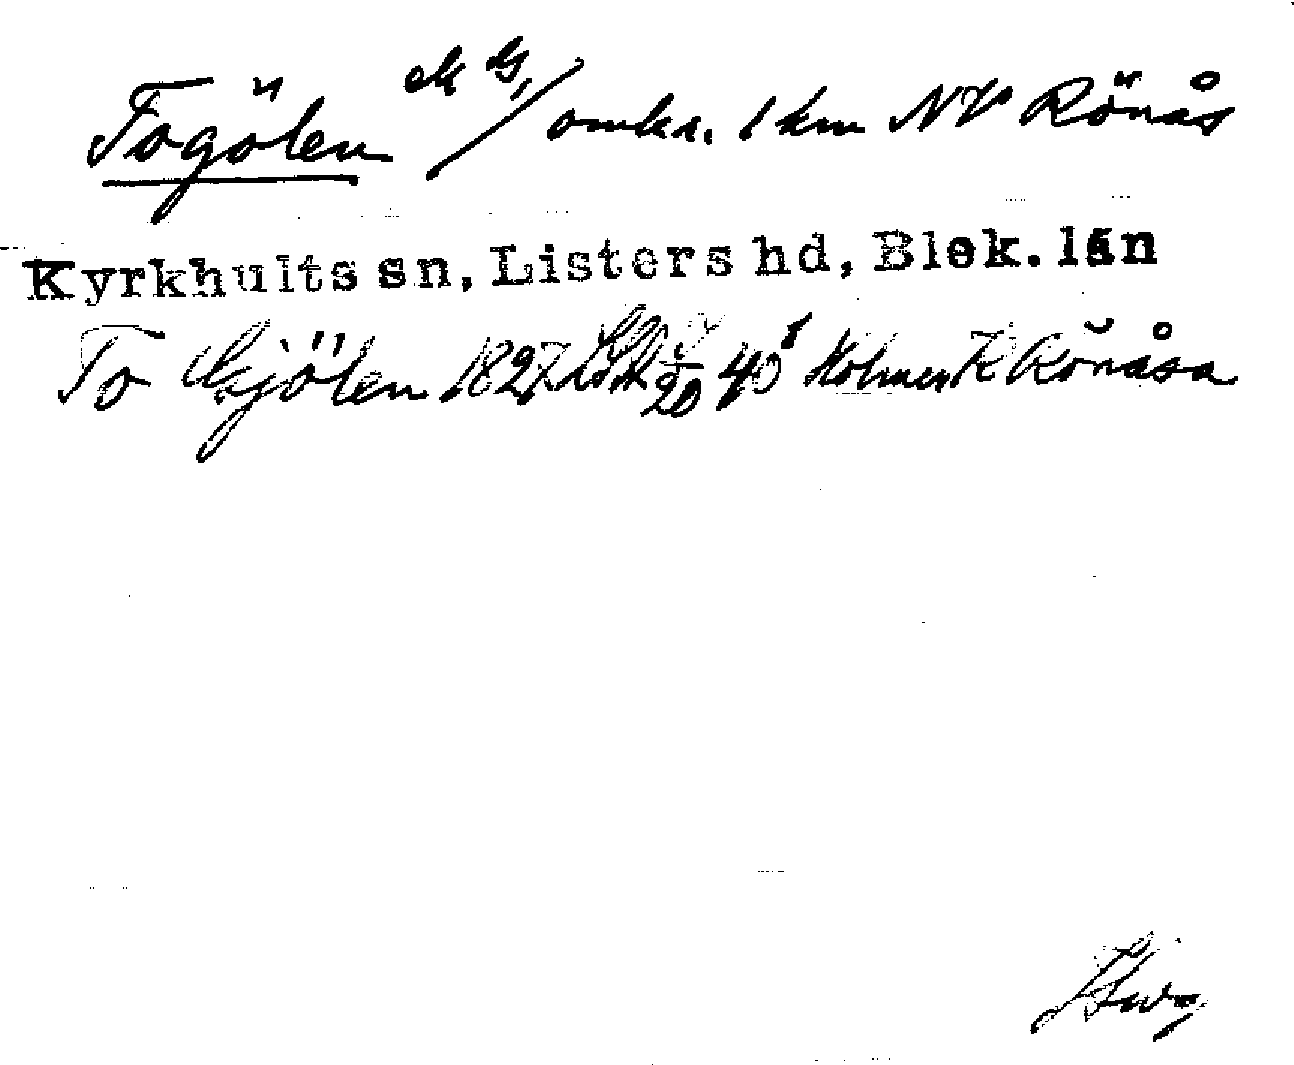 Togölen omkr. 1 km NV Rönås
Kyrkhults sn, Listers hd, Blek. län
To Gjölen 1827 20 40 Holmen Rönåsa